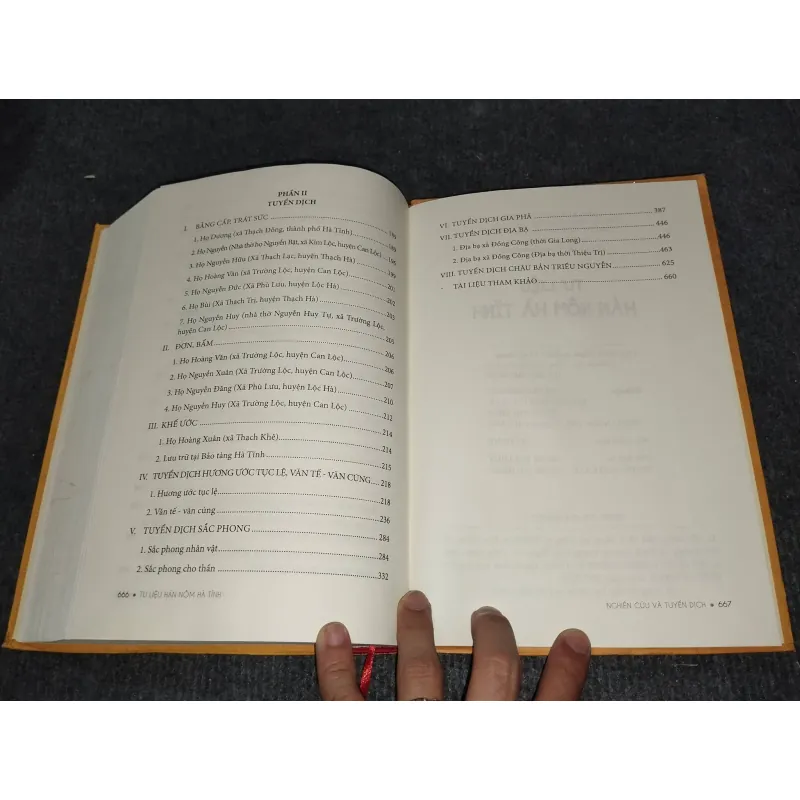 PHẦN II
TUYỂN DỊCH
I. BẰNG CẤP, TRÁT SỨC
1. Họ Dương (xã Thạch Đồng, thành phố Hà Tĩnh)
2. Họ Nguyễn (Nhà thờ họ Nguyễn Bật, xã Kim Lộc, huyện Can Lộc)
3. Họ Nguyễn Hữu (Xã Thạch Lạc, huyện Thạch Hà)
4. Họ Hoàng Văn (xã Trường Lộc, huyện Can Lộc) 201
5. Họ Nguyễn Đức (Xã Phù Lưu, huyện Lộc Hà) 202
6. Họ Bùi (Xã Thạch Trị, huyện Thạch Hà) 203
7. Họ Nguyễn Huy (nhà thờ Nguyễn Huy Tự, xã Trường Lộc,
huyện Can Lộc) 205
II. ĐƠN, BẨM 206
1. Họ Hoàng Văn (xã Trường Lộc, huyện Can Lộc) 206
2. Họ Nguyễn Xuân (Xã Trường Lộc, huyện Can Lộc) 207
3. Họ Nguyễn Đăng (Xã Phù Lưu, huyện Lộc Hà) 210
4. Họ Nguyễn Huy (Xã Trường Lộc, huyện Can Lộc) 212
III. KHẾ ƯỚC 214
1. Họ Hoàng Xuân (xã Thạch Khê) 214
2. Lưu trữ tại Bảo tàng Hà Tĩnh 215
IV. TUYỂN DỊCH HƯƠNG ƯỚC TỤC LỆ, VĂN TẾ - VĂN CÚNG 218
1. Hương ước tục lệ 218
2. Văn tế - văn cúng 236
V. TUYỂN DỊCH SẮC PHONG 284
1. Sắc phong nhân vật 284
2. Sắc phong cho thần 332
666 • TƯ LIỆU HÁN NÔM HÀ TĨNH
VI. TUYỂN DỊCH GIA PHẢ 387
VII. TUYỂN DỊCH ĐỊA BẠ 446
1. Địa bạ xã Đồng Công (thời Gia Long) 446
2. Địa bạ xã Đồng Công (Địa bạ thời Thiệu Trị) 463
VIII. TUYỂN DỊCH CHÂU BẢN TRIỀU NGUYỄN 625
- TÀI LIỆU THAM KHẢO 660
HÁN NÔM HÀ TĨNH
NGHIÊN CỨU VÀ TUYỂN DỊCH • 667